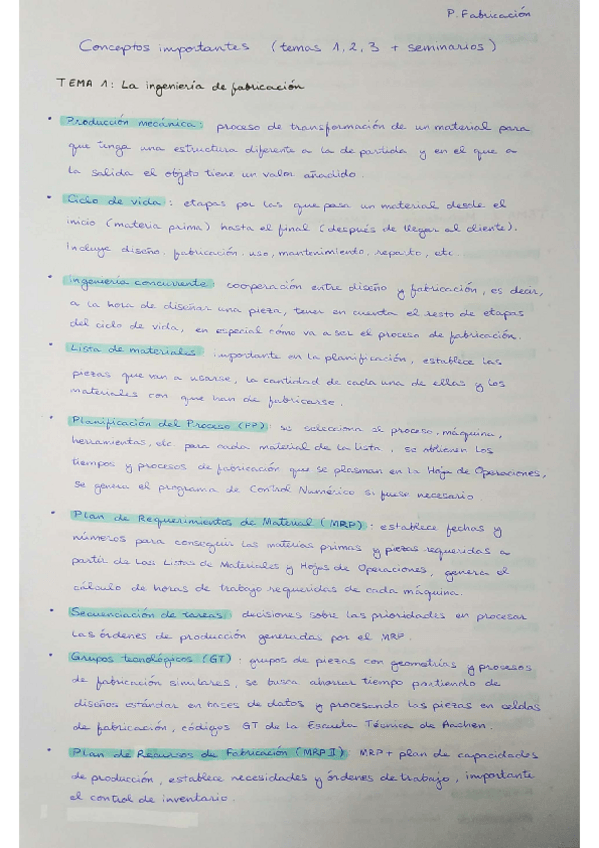 P. Fabricación
Conceptos importantes (temas 1, 2, 3 + seminarios)
TEMA 1: La ingeniería de fabricación
• Producción mecánica: proceso de transformación de un material para
que tenga una estructura diferente a la de partida y en el que a
la salida el objeto tiene un valor añadido.
• Ciclo de vida: etapas por las que pasa un material desde el
inicio (materia prima) hasta el final (después de llegar al cliente).
Incluye diseño, fabricación, uso, mantenimiento, reparto, etc.
• Ingeniería concurrente: cooperación entre diseño y fabricación, es decir,
a la hora de diseñar una pieza, tener en cuenta el resto de etapas
del ciclo de vida, en especial cómo va a ser el proceso de fabricación.
• Lista de materiales: importante en la planificación, establece las
piezas que van a usarse, la cantidad de cada una de ellas y los
materiales con que han de fabricarse.
• Planificación del Proceso (PP): se selecciona el proceso, máquina,
herramientas, etc para cada material de la lista, se obtienen los
tiempos y procesos de fabricación que se plasman en la Hoja de Operaciones,
se genera el programa de Control Numérico si fuese necesario.
• Plan de Requerimientos de Material (MRP): establece fechas y
números para conseguir las materias primas y piezas requeridas a
partir de las Listas de Materiales y Hojas de Operaciones, genera el
cálculo de horas de trabajo requeridas de cada máquina.
• Secuenciación de tareas: decisiones sobre las prioridades en procesar
las órdenes de producción generadas por el MRP.
• Grupos tecnológicos (GT): grupos de piezas con geometrías y procesos
de fabricación similares, se busca ahorrar tiempo partiendo de
diseños estándar en bases de datos y procesando las piezas en celdas
de fabricación, códigos GT de la Escuela Técnica de Aachen.
• Plan de Recursos de Fabricación (MRP II) MRP + plan de capacidades
de producción, establece necesidades y órdenes de trabajo, importante
el control de inventario.